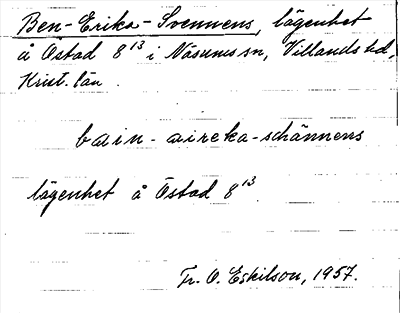 Ben-Erika-Svennens, lägenhet
å Östad 8¹³ i Näsums sn, Villands hd,
Krist. län.
bain-aireka-schännens
lägenhet å Östad 8¹³.
Fr. O. Eskilson, 1957.